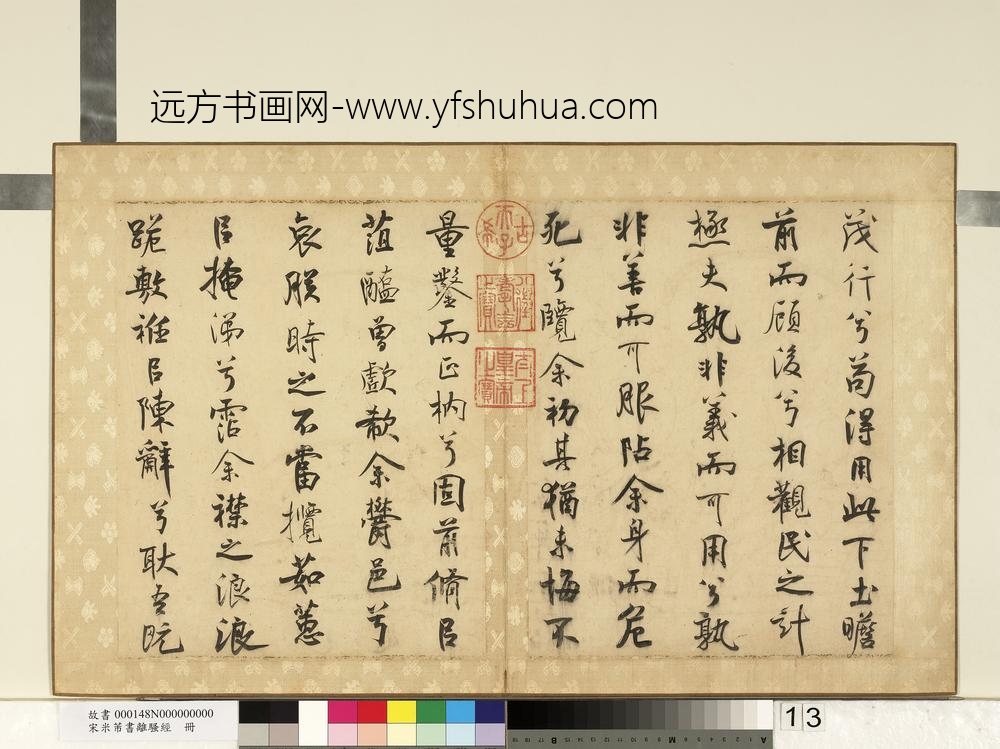 远方书画网-www.yfshuhua.com
茂行兮苟得用此下土瞻
前而顧後兮相觀民之計
極夫孰非義而可用兮孰
非善而可服阽余身而危
死兮覽余初其猶未悔不
量鑿而正枘兮固前脩㠯
菹醢曾歔欷余鬱邑兮
哀朕時之不當攬茹蕙
㠯掩涕兮霑余襟之浪浪
跪敷衽㠯陳辭兮耿吾既
古希天子
八徵耄念之寶
太上皇帝之寶
故書 000148N000000000
宋米芾書離騷經 冊
13